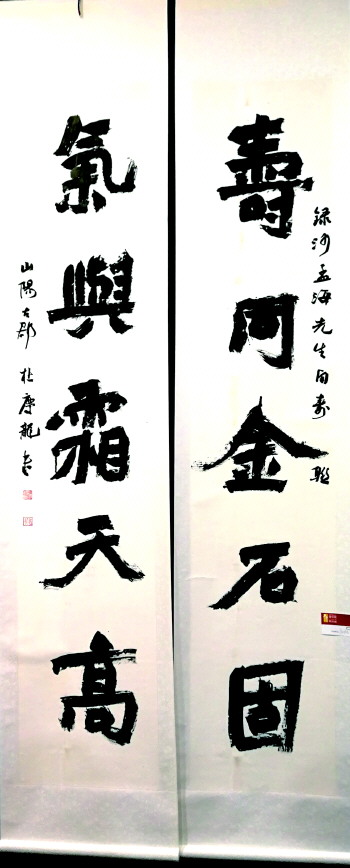 壽同金石固
録沙孟海先生自壽聯
氣與霜天高
山陽古郡 杜康龍書